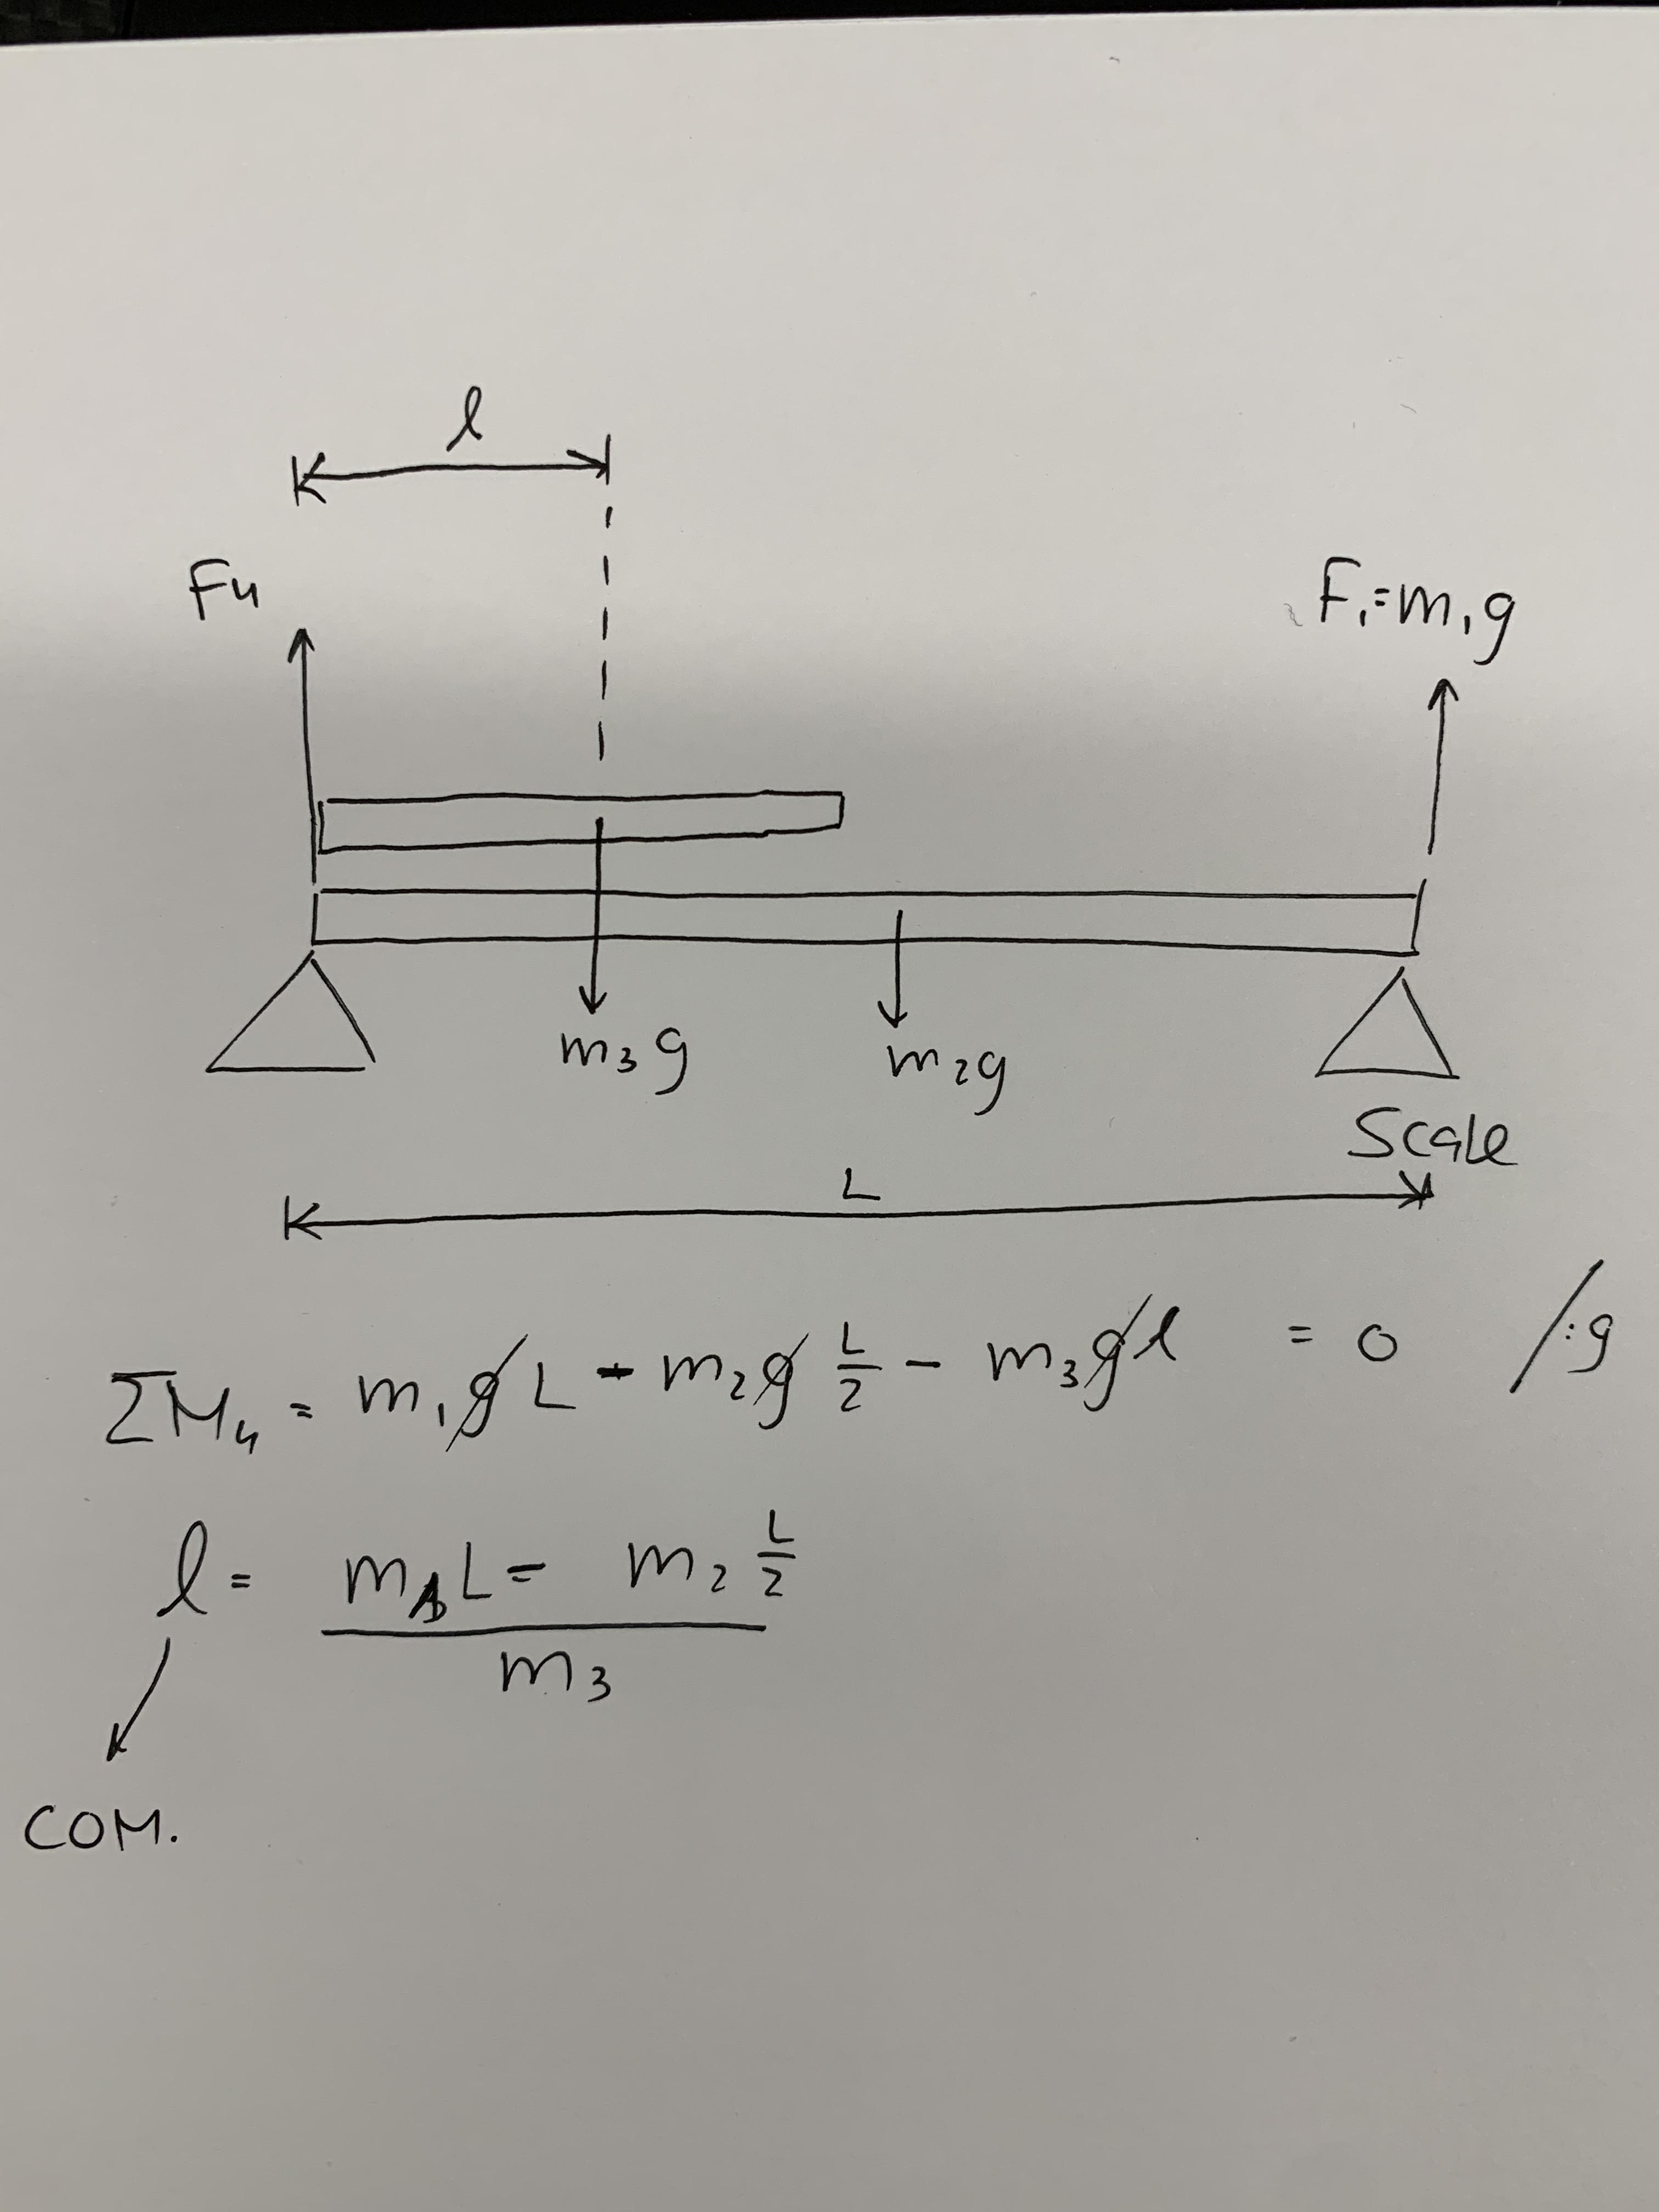 l
F4
F1=m1g
m3g
m2g
Scale
L
ΣM4 = m1g L - m2g L/2 - m3g l = 0 /:g
l = m1L = m2 L/2
m3
COM.